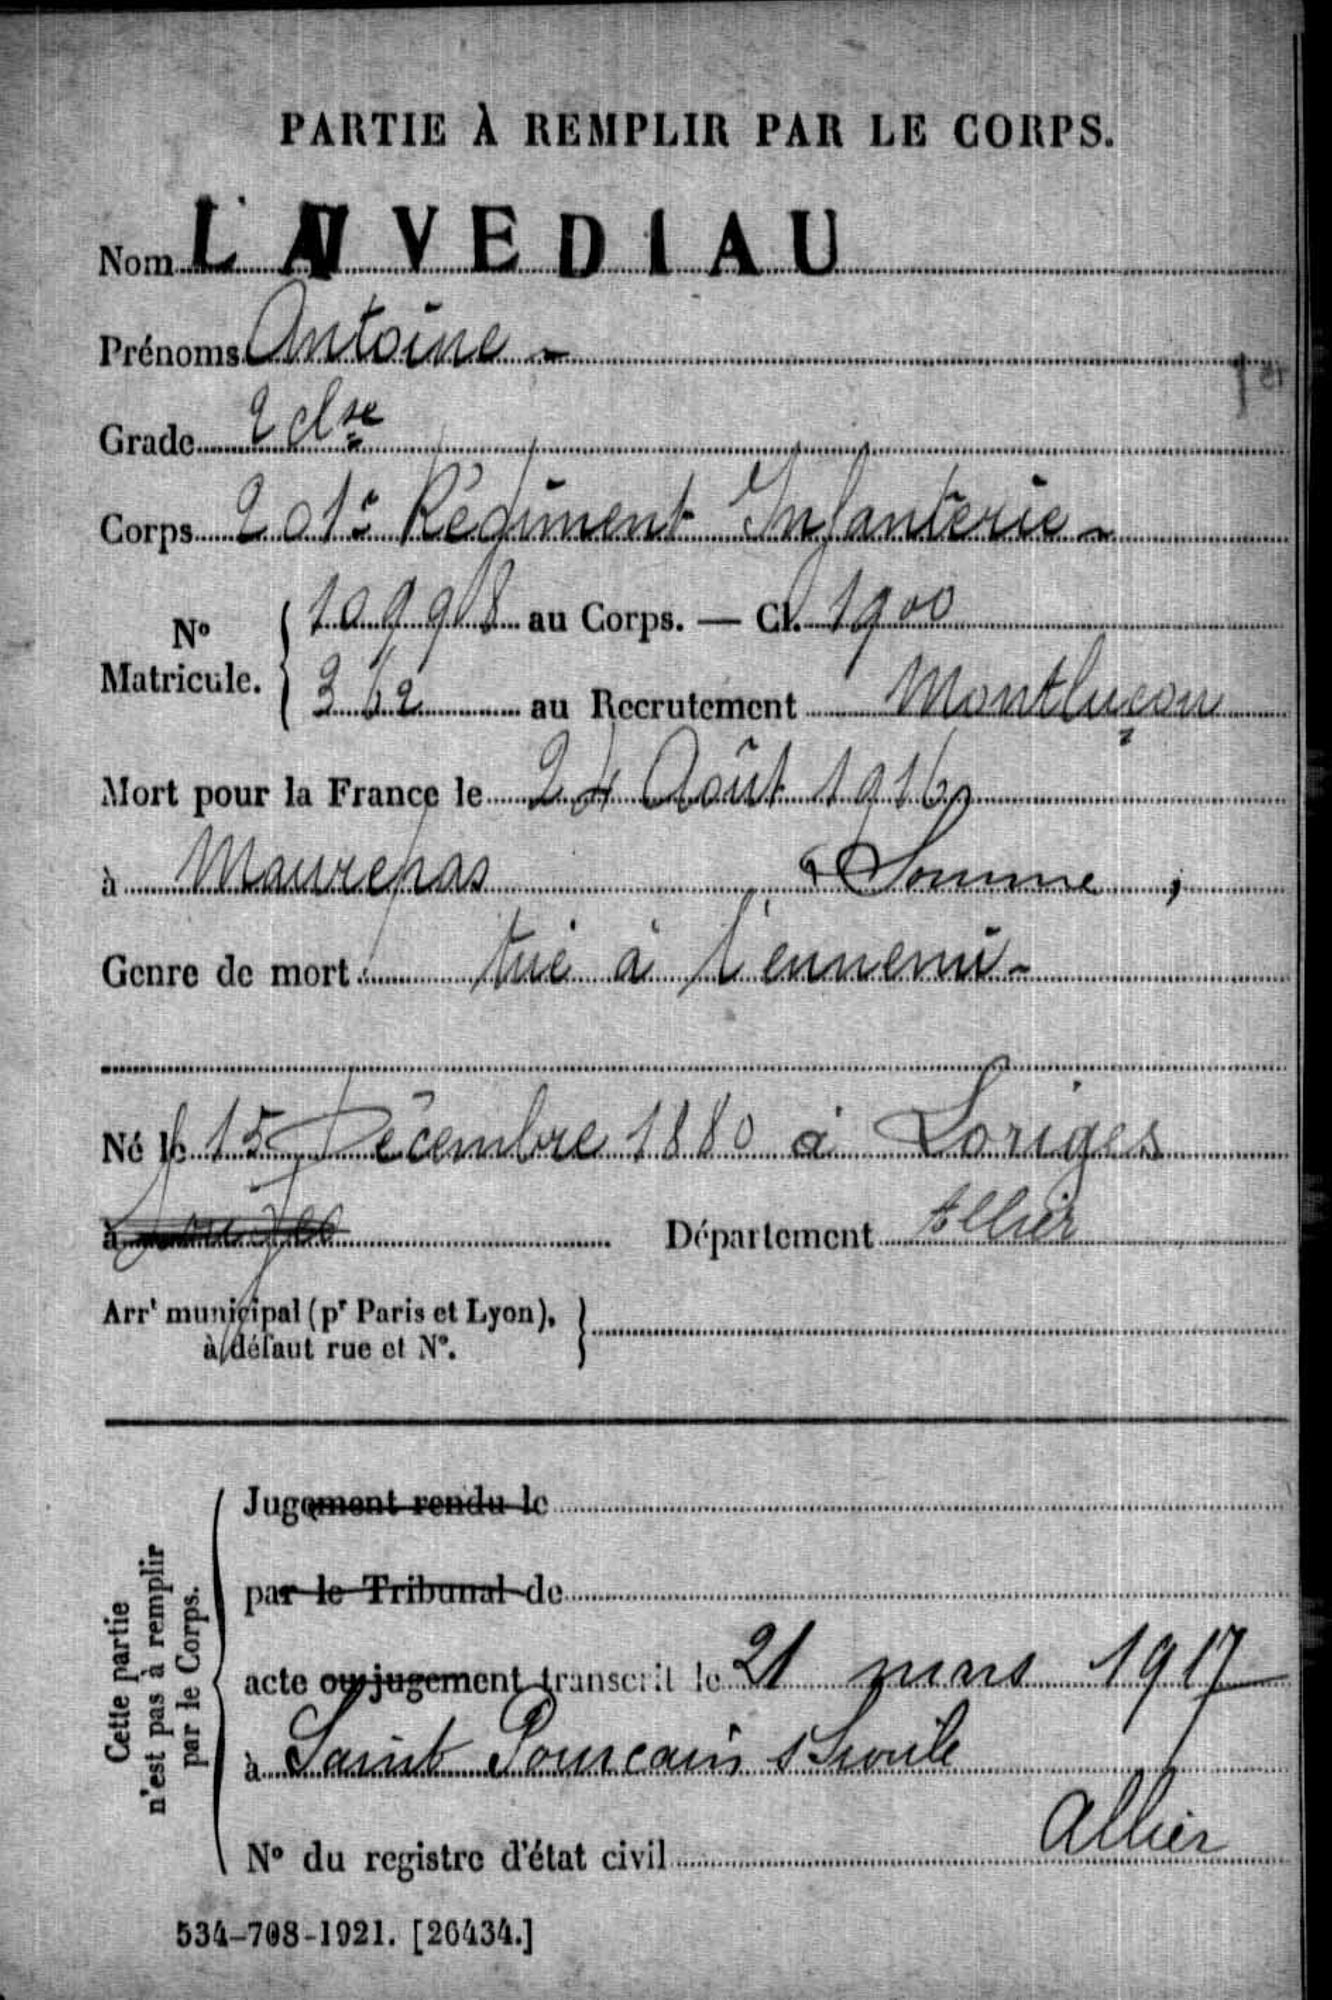 PARTIE À REMPLIR PAR LE CORPS.
Nom LAVEDIAU
Prénoms Antoine -
1er
Grade 2 clse
Corps 201e Régiment Infanterie -
No Matricule. { 10998 au Corps. — Cl. 1900
362 au Recrutement Montluçon
Mort pour la France le 24 Août 1916
à Maurepas Somme,
Genre de mort tué à l'ennemi -
Né le 15 Décembre 1880 à Loriges
à Département Allier
Arrt municipal (pr Paris et Lyon), }
à défaut rue et No.
Cette partie n'est pas à remplir par le Corps.
Jugement rendu le
par le Tribunal de
acte ou jugement transcrit le 21 mars 1917
à Saint Pourcain s/ Sioule
Allier
No du registre d'état civil
534-708-1921. [26434.]